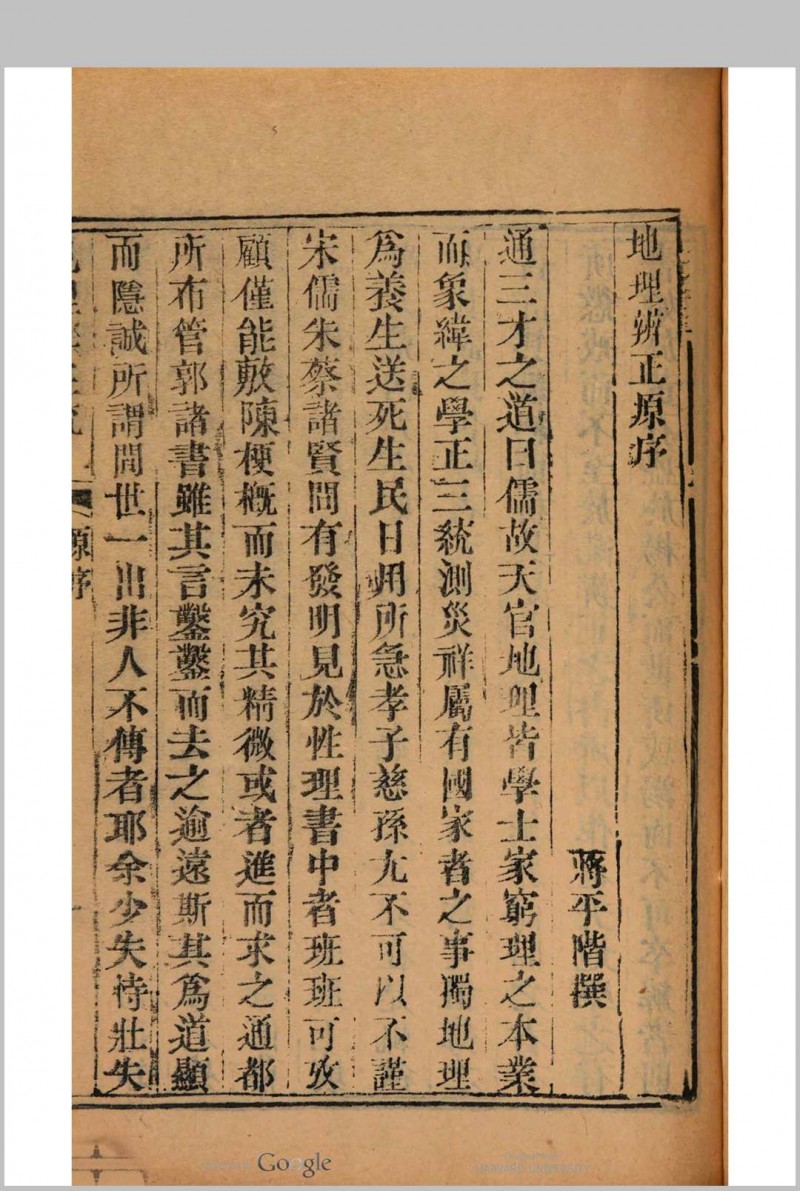 地理辨正原序
蔣平階撰
通三才之道曰儒故天官地理皆學士家窮理之本業
而象緯之學正三統測災祥屬有國家者之事獨地理
爲養生送死生民日用所急孝子慈孫尤不可以不謹
宋儒朱蔡諸賢間有發明見於性理書中者班班可攷
顧僅能敷陳梗槪而未究其精微或者進而求之通都
所布管郭諸書雖其言鑿鑿而去之逾遠斯其爲道顯
而隱誠所謂間世一出非人不傳者耶余少失恃壯失
原序
Google